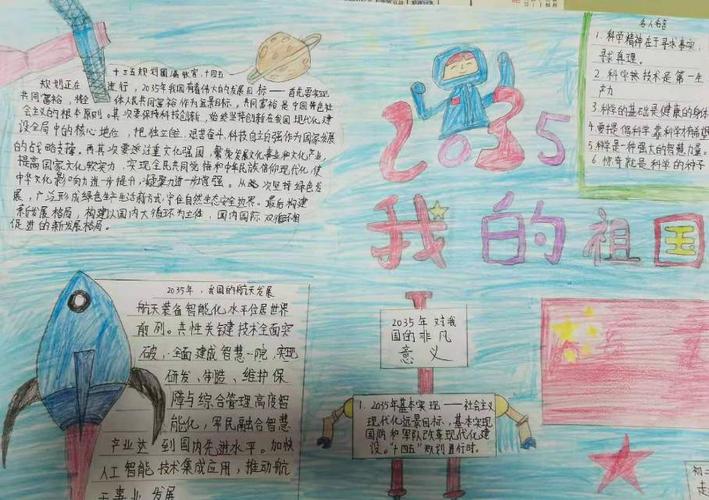 十三五规划圆满收官,十四五
规划正在进行,2035年我国有着伟大的发展目标——首先要实现
共同富裕,
体人民共同富裕作为远景目标,共同富裕是中国特色社
会主义的根本原则。其次要保持科技创新,始终坚持创新在我国现代化建
设全局中的核心地位,把独立自主、艰苦奋斗,科技自立自强作为国家发展
的战略支撑。再其次要通过建文化强国,繁荣发展文化事业和文化产业,
提高国家文化软实力,实现全民共同党悟和中华民族信仰现代化,使
中华文化影响力进一步提升,凝聚力进一步增强。从此次坚持绿色发
展,广泛形成绿色生产生活新方式,守住自然生态安全边界。最后构建
新发展格局,构建以国内大循环为主体,国内国际双循环相
促进的新发展格局。
2035
我的祖国
名人名言
1.科学精神在于寻求事实,
寻求真理。
2.科学技术是第一生
产力
3.科学的基础是健康的身体
4.要提倡科学,靠科学才有希望
5.科学是一种强大的智慧力量。
6.惊奇就是科学的种子
2035年,我国的航天发展
航天装备智能化水平位居世界
前列。共性关键技术全面突
破,全面建成智慧一院,实现
研发、制造、维护保
障与综合管理高度智
能化,军民融合智慧
产业达到国内先进水平。加快
人工智能技术集成应用,推动航
天事业发展
2035年对我
国的非凡
意义
1.2035年基本实现——社会主义
现代化远景目标,基本实现
国防和军队改革现代化建
设。"十四五"规划直行时。
初二